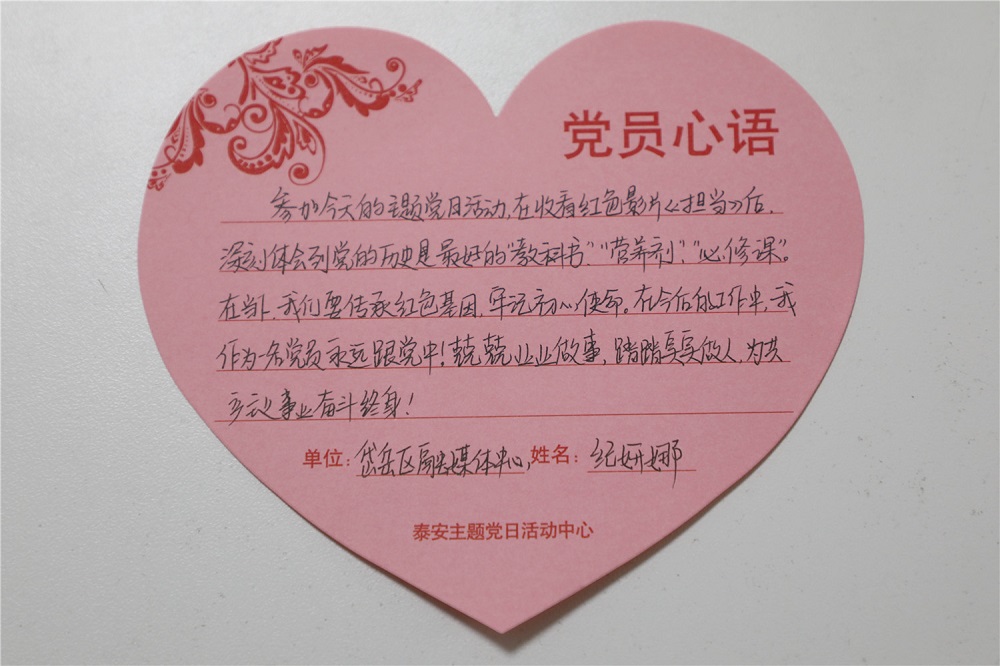 党员心语
参加今天的主题党日活动,在收看红色影片《担当》后,
深刻体会到党的历史是最好的“教科书”、“营养剂”、“必修课”。
在当下,我们要传承红色基因,牢记初心使命。在今后的工作中,我
作为一名党员永远跟党中!兢兢业业做事,踏踏实实做人,为共
产主义事业奋斗终身!
单位:岱岳区融媒体中心, 姓名:纪妍娜
泰安主题党日活动中心